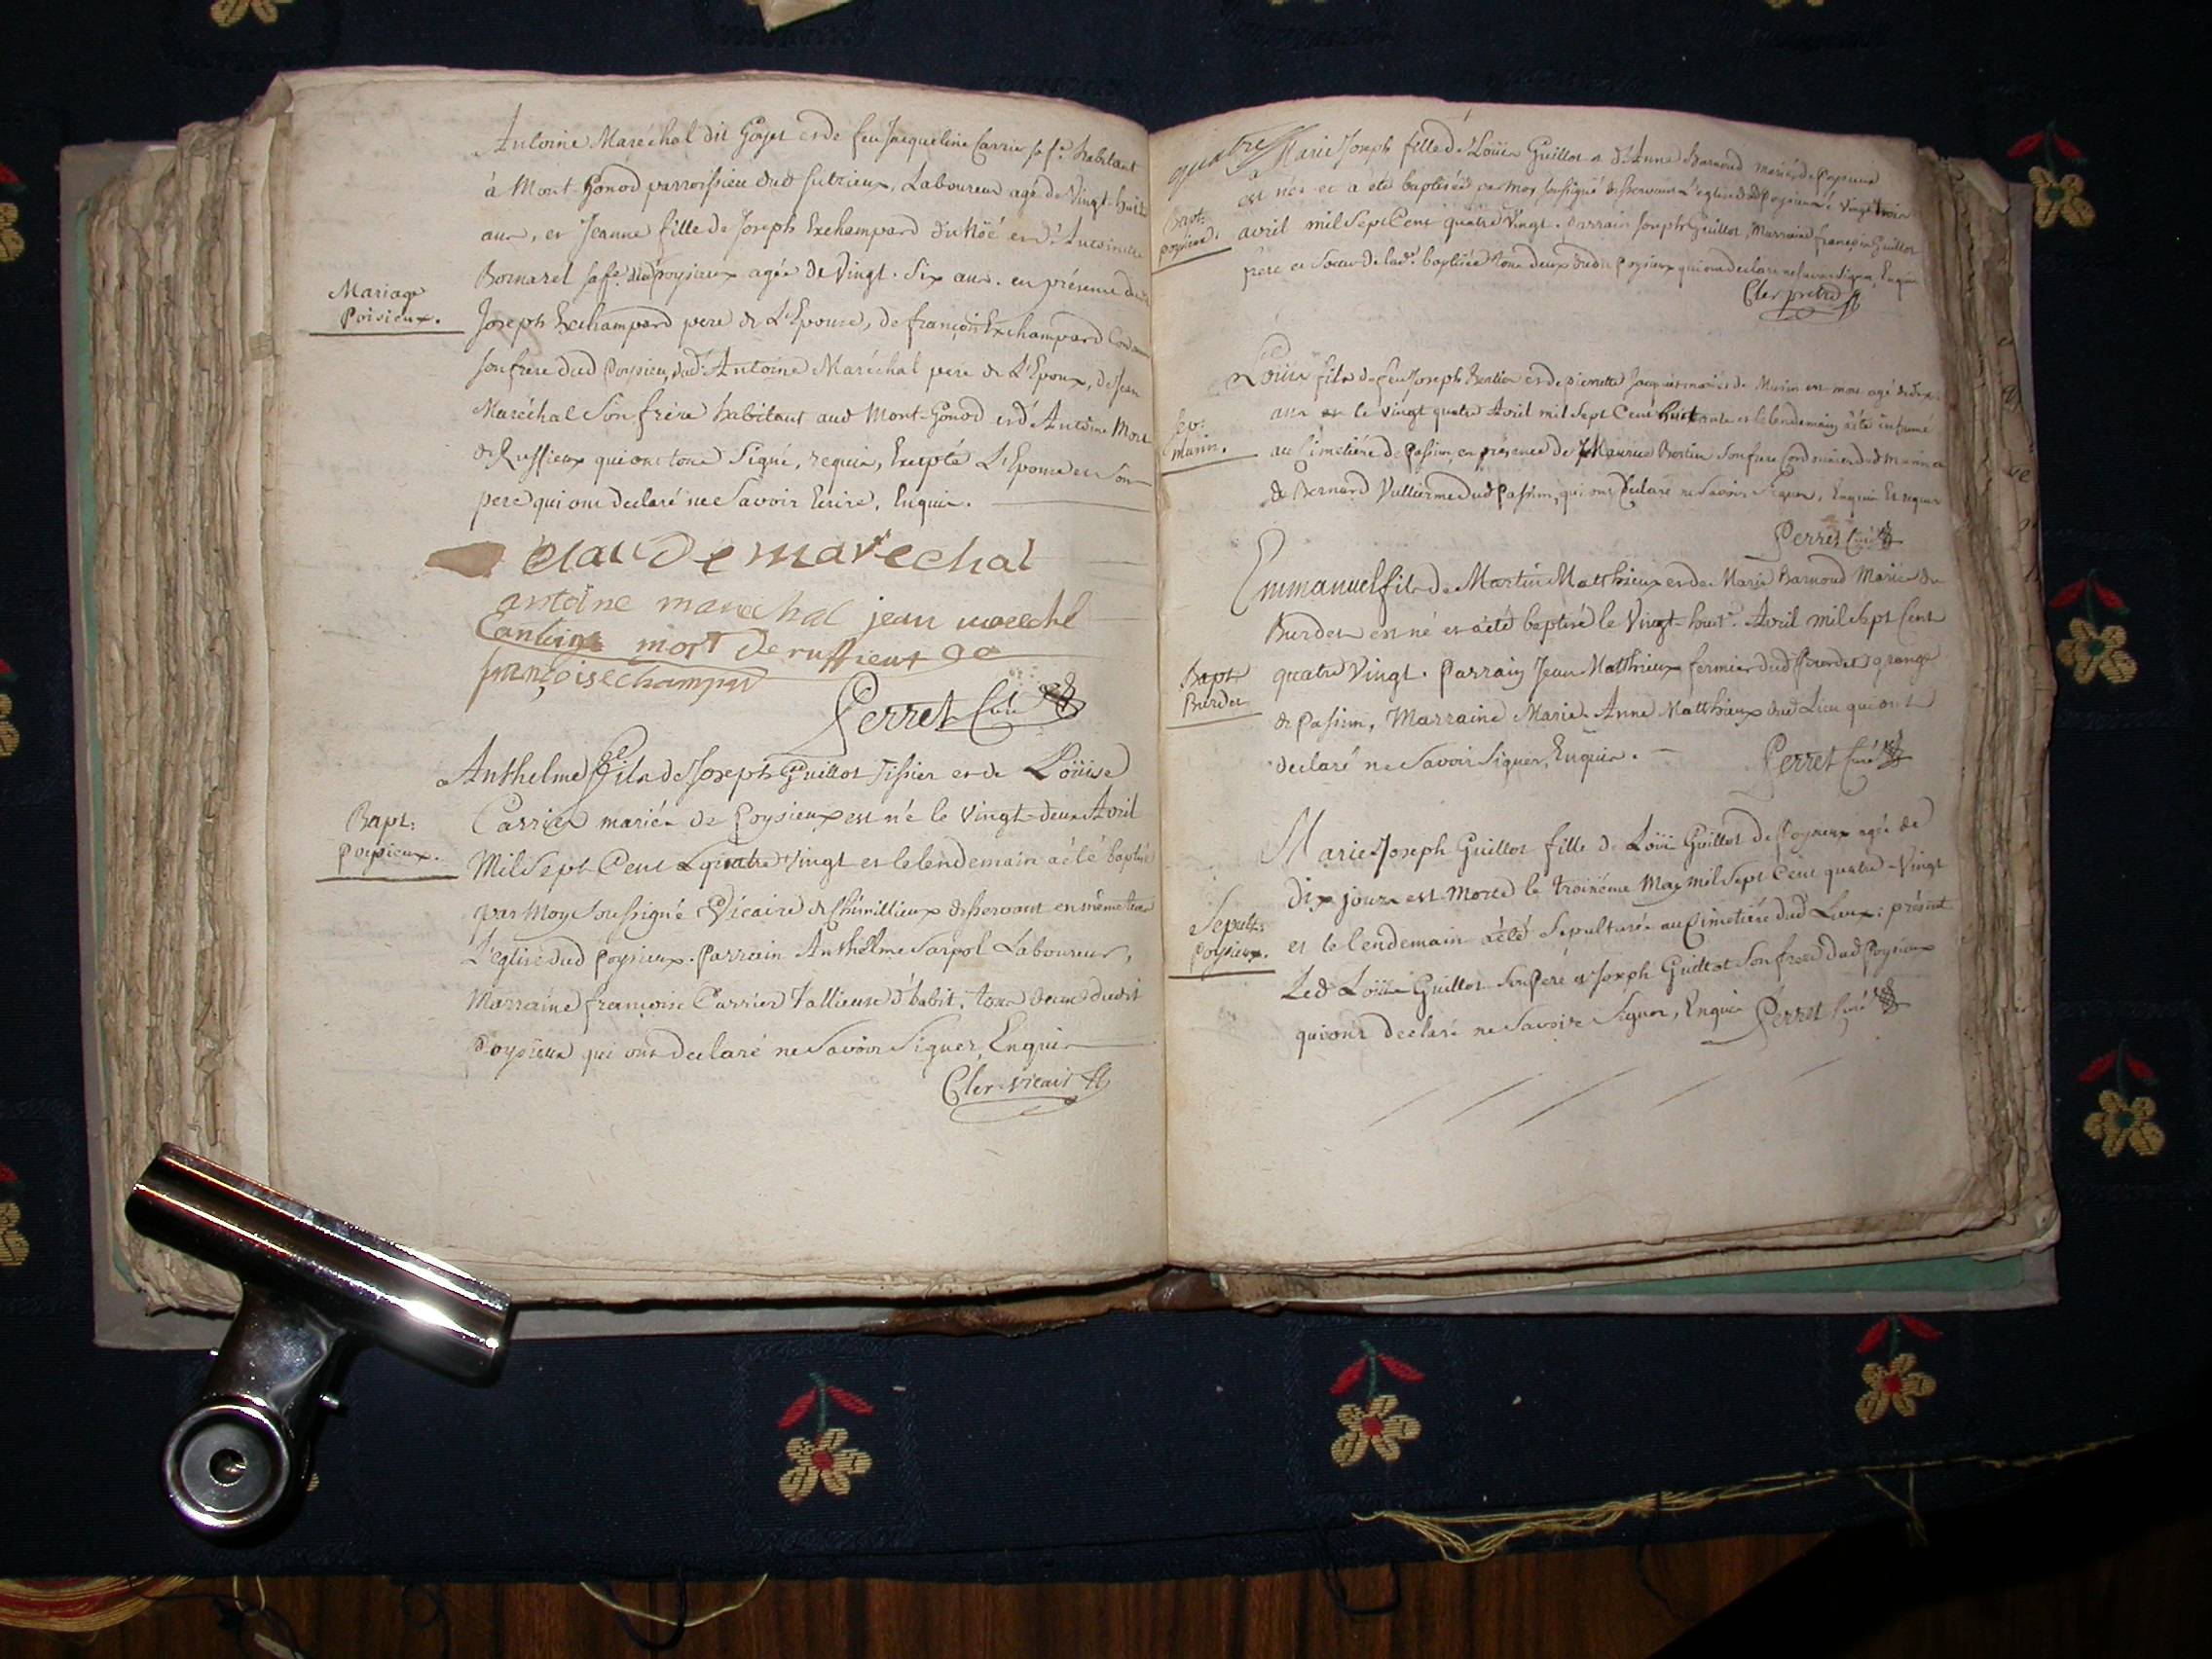 Antoine Maréchal dit Goyet et de feu Jacqueline Carrier sa fe. habitant
à Mont-Gonod parroissien dud sutrieux, Laboureur agé de Vingt-huit
ans, et Jeanne fille de Joseph Exchampard du Noé et d'Antoinette
Mariage
Poisieux.
Bornarel sa fe. dud poysieux agée de Vingt-Six ans. en présence dudit
Joseph Exchampard pere de L'Epouse, de françois Exchampard
son frere dud Poysieu, dud Antoine Maréchal pere de L'Epoux, de Jean
Maréchal Son frere habitant aud Mont-Gonod et d'Antoine Mort
de Ruffieux qui ont tous Signé, requis, Excepté L'Epouse et Son
pere qui ont declaré ne Savoir Ecrire, Enquis.
claude marechal
antoine marechal jean
antoine mort de ruffieux
françois echampar
Perret Curé
Anthelme fils de Joseph Guillot Tissier et de Loüise
Bapt:
Poysieux.
Carrier mariés de Poysieux est né le Vingt-deux Avril
Mil Sept Cent quatre Vingt et le lendemain a été baptisé
par Moy Soussigné Vicaire de Chimillieux desservant en même tems
L'eglise dud Poysieux. Parrain Anthelme Sarpol Laboureur,
Marraine françoise Carrier Tallieuse d'habit, tous deux dudit
Poysieux qui ont declaré ne Savoir Signer, Enquis
Cler vicair
quatre
Marie Joseph fille de Loüis Guillot et d'Anne Barnoud mariés de Poysieux
est née et a été baptisée par moy soussigné desservant L'eglise de Poysieux le Vingt trois
Bapt:
poysieux.
avril mil Sept Cent quatre Vingt. Parrain Joseph Guillot, Marraine françoise Guillot
frere et Soeur de lad. baptisée tous deux dudit Poysieux qui ont declaré ne Savoir Signer, Enquis
Cler pretre
Loüis fils de feu Joseph Bertin et de pierrette Jacquet mariés de Murin est mort agé de dix
Sep:
Murin.
ans le vingt quatre Avril mil Sept Cent huitante et le lendemain a été inhumé
au Cimetiere de Passin, en présence de Maurice Bertin Son frere Cordonnier dud Murin et
de Bernard Vulliermed dud Passin, qui ont declaré ne Savoir Signer, Enquis
Perret Curé
Emmanuel fils de Martin Matthieux et de Marie Barnoud Mariés du
Burdet est né et a été baptisé le Vingt-huit Avril mil Sept Cent
Bapt
Burdet
quatre Vingt. Parrain Jean Matthieux fermier dud Burdet grange
de Passin, Marraine Marie-Anne Matthieux dud Lieu qui ont
declaré ne Savoir Signer, Enquis.
Perret Curé
Marie Joseph Guillot fille de Loüis Guillot de Poysieux agée de
dix jours est Morte le troisième May mil Sept Cent quatre-Vingt
Sepult:
Poysieux.
et le lendemain a été Sepulturée au Cimetiere dud Lieux; présent
Led Loüis Guillot Son Pere et Joseph Guillot Son frere dud Poysieux
qui ont declaré ne Savoir Signer, Enquis Perret Curé